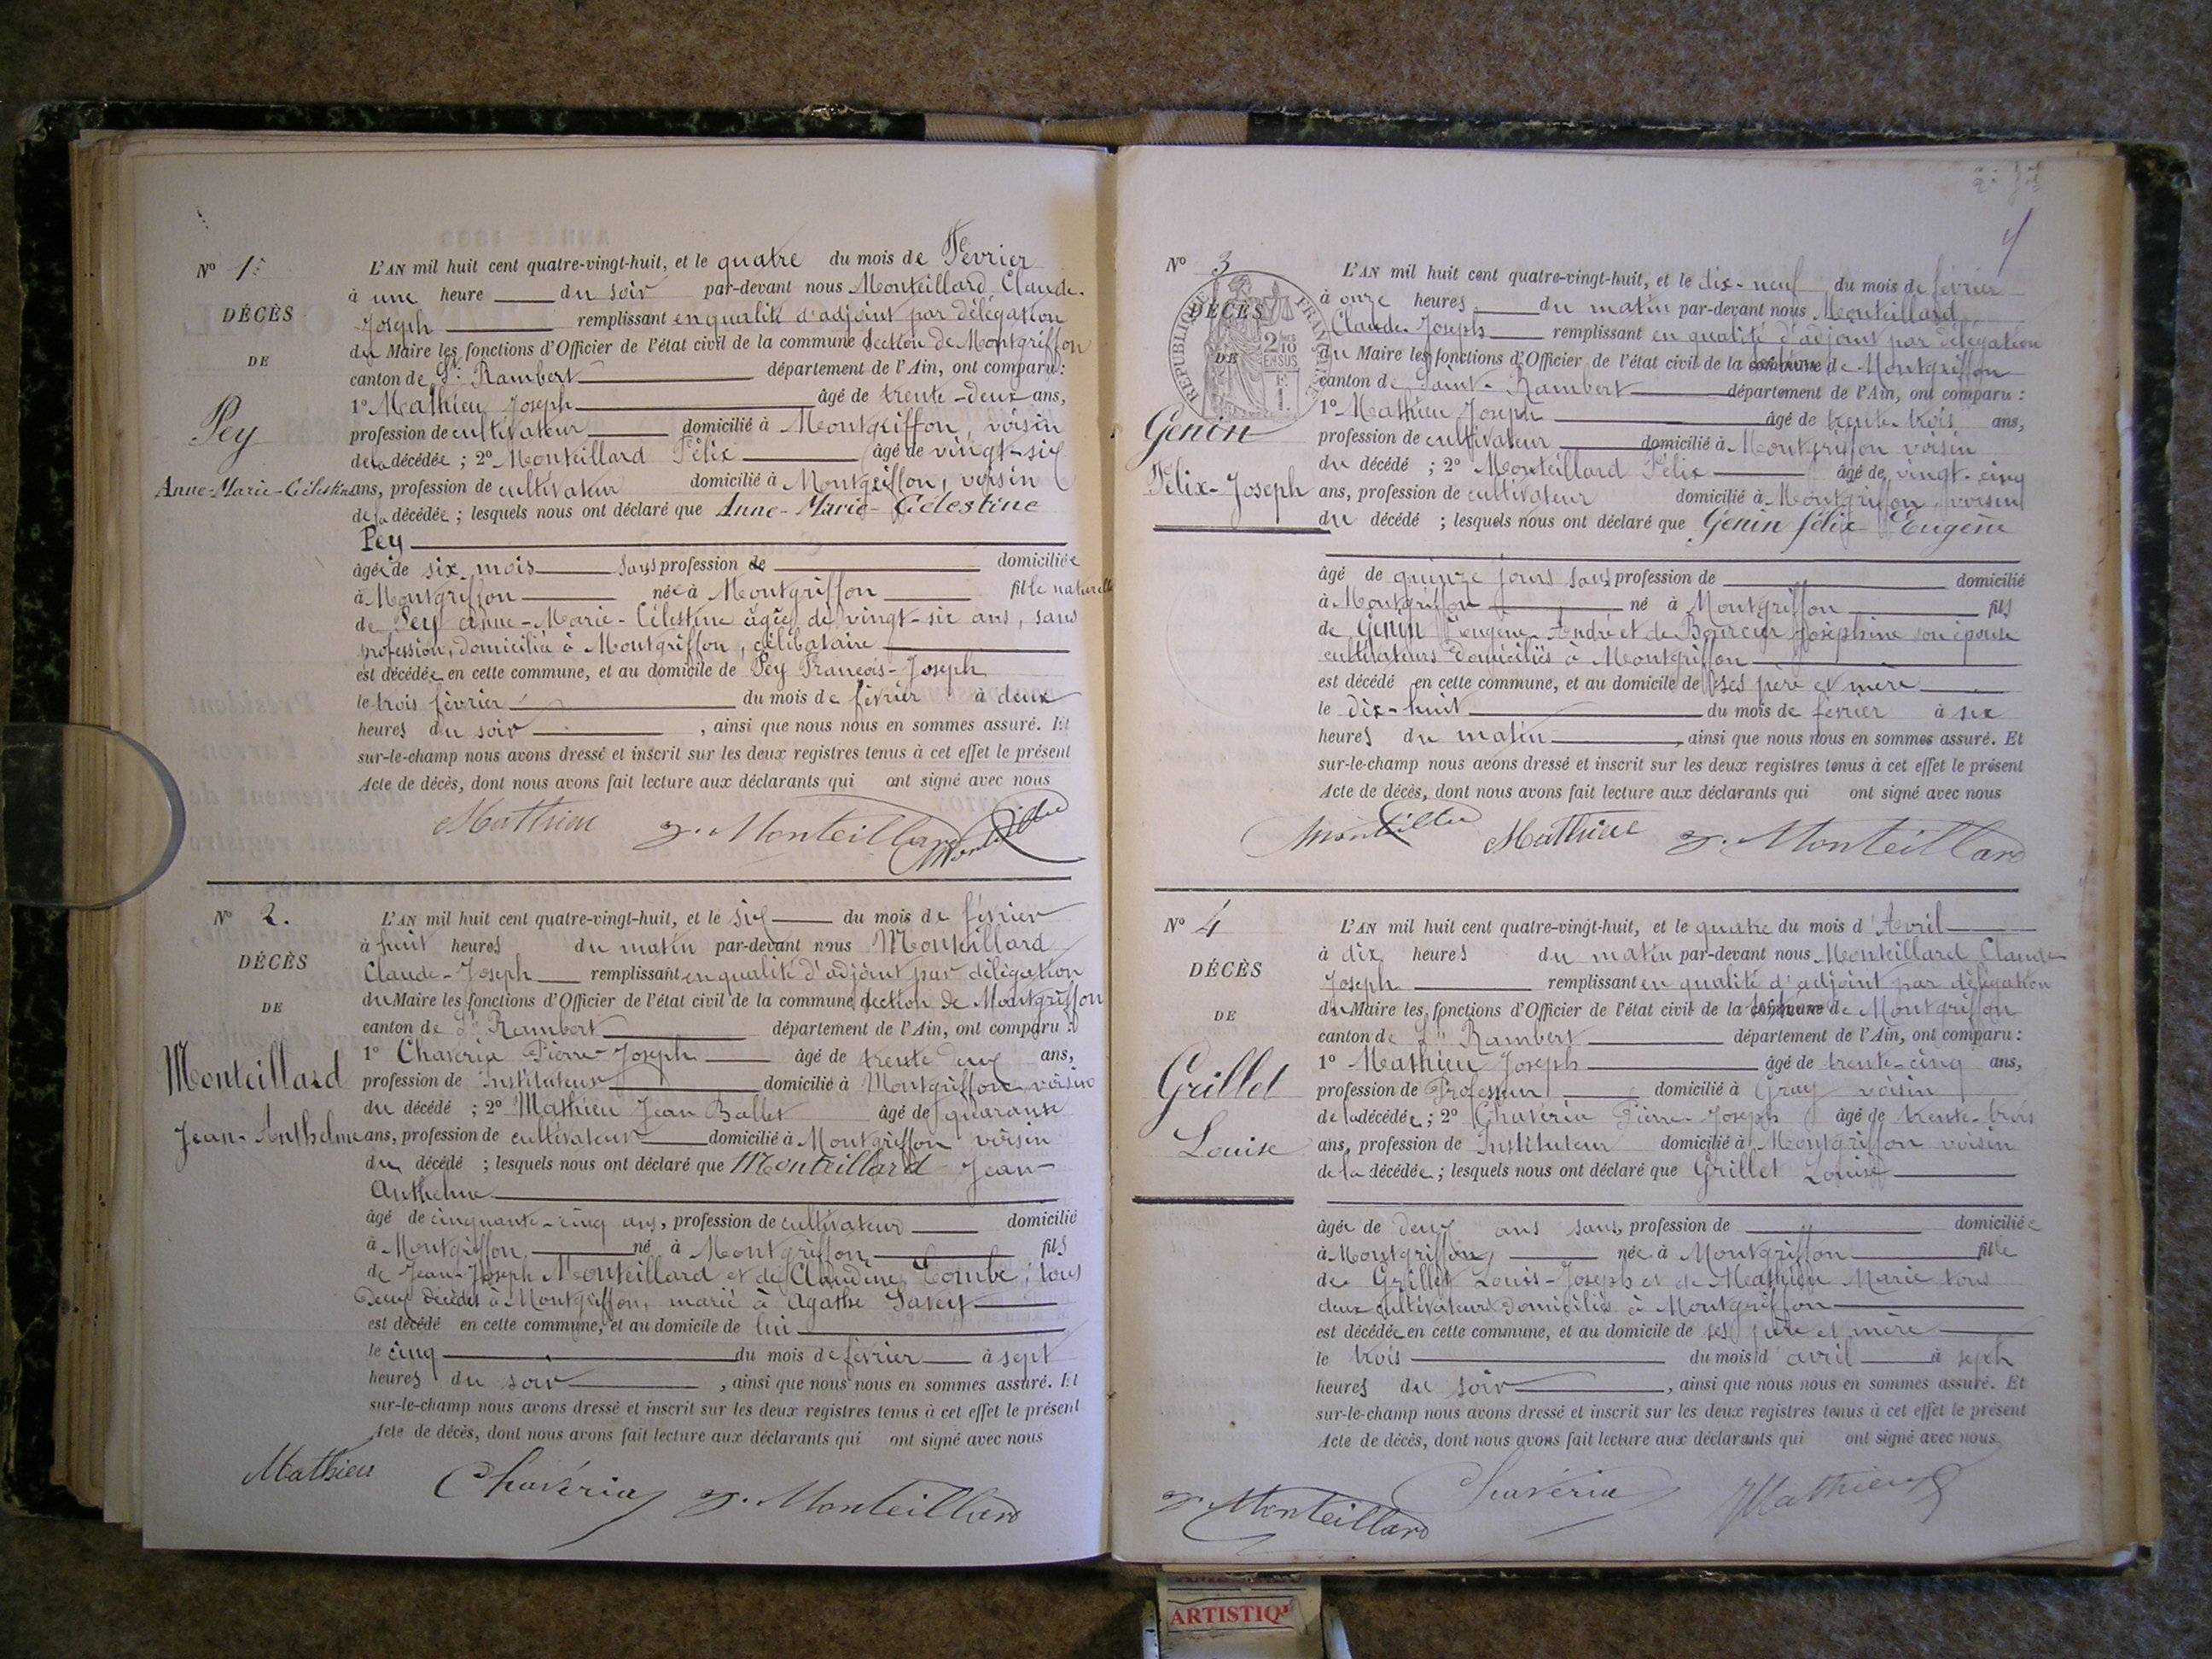 N° 1.
DÉCÈS
DE
Pey
Anne-Marie-Célestine
L'AN mil huit cent quatre-vingt-huit, et le quatre du mois de Février
à une heure du soir par-devant nous Monteillard Claude-
Joseph remplissant en qualité d'adjoint par délégation
du Maire les fonctions d'Officier de l'état civil de la commune section de Montgriffon
canton de St Rambert département de l'Ain, ont comparu :
1° Mathieu Joseph âgé de trente-deux ans,
profession de cultivateur domicilié à Montgriffon, voisin
de la décédée ; 2° Monteillard Félix âgé de vingt-six
ans, profession de cultivateur domicilié à Montgriffon, voisin
de la décédée ; lesquels nous ont déclaré que Anne-Marie-Célestine
Pey
âgée de six mois sans profession de domiciliée
à Montgriffon née à Montgriffon fille naturelle
de Pey Anne-Marie-Célestine âgée de vingt-six ans, sans
profession, domiciliée à Montgriffon, célibataire
est décédée en cette commune, et au domicile de Pey François-Joseph
le trois février du mois de février à deux
heures du soir , ainsi que nous nous en sommes assuré. Et
sur-le-champ nous avons dressé et inscrit sur les deux registres tenus à cet effet le présent
Acte de décès, dont nous avons fait lecture aux déclarants qui ont signé avec nous
Mathieu F. Monteillard
N° 2.
DÉCÈS
DE
Monteillard
Jean-Anthelme
L'AN mil huit cent quatre-vingt-huit, et le six du mois de février
à huit heures du matin par-devant nous Monteillard
Claude-Joseph remplissant en qualité d'adjoint par délégation
du Maire les fonctions d'Officier de l'état civil de la commune section de Montgriffon
canton de St Rambert département de l'Ain, ont comparu :
1° Chavéria Pierre-Joseph âgé de trente deux ans,
profession de Instituteur domicilié à Montgriffon voisin
du décédé ; 2° Mathieu Jean Ballet âgé de quarante
ans, profession de cultivateur domicilié à Montgriffon voisin
du décédé ; lesquels nous ont déclaré que Monteillard Jean-
Anthelme
âgé de cinquante-cinq ans, profession de cultivateur domicilié
à Montgriffon né à Montgriffon fils
de Jean-Joseph Monteillard et de Claudine Combe, tous
deux décédés à Montgriffon, marié à Agathe Savey
est décédé en cette commune, et au domicile de lui
le cinq du mois de février à sept
heures du soir , ainsi que nous nous en sommes assuré. Et
sur-le-champ nous avons dressé et inscrit sur les deux registres tenus à cet effet le présent
Acte de décès, dont nous avons fait lecture aux déclarants qui ont signé avec nous
Mathieu Chavéria F. Monteillard
4
N° 3
DÉCÈS
DE
RÉPUBLIQUE FRANÇAISE
2 10
EN SUS
1 F.
Genin
Félix-Joseph
L'AN mil huit cent quatre-vingt-huit, et le dix-neuf du mois de février
à onze heures du matin par-devant nous Monteillard
Claude-Joseph remplissant en qualité d'adjoint par délégation
du Maire les fonctions d'Officier de l'état civil de la commune de Montgriffon
canton de Saint-Rambert département de l'Ain, ont comparu :
1° Mathieu Joseph âgé de trente-trois ans,
profession de cultivateur domicilié à Montgriffon voisin
du décédé ; 2° Monteillard Félix âgé de vingt-cinq
ans, profession de cultivateur domicilié à Montgriffon, voisin
du décédé ; lesquels nous ont déclaré que Genin félix Eugène
âgé de quinze jours sans profession de domicilié
à Montgriffon né à Montgriffon fils
de Genin Eugène-André et de Bourcier Joséphine son épouse
cultivateurs domiciliés à Montgriffon
est décédé en cette commune, et au domicile de ses père et mère
le dix-huit du mois de février à six
heures du matin , ainsi que nous nous en sommes assuré. Et
sur-le-champ nous avons dressé et inscrit sur les deux registres tenus à cet effet le présent
Acte de décès, dont nous avons fait lecture aux déclarants qui ont signé avec nous
Mathieu F. Monteillard
N° 4
DÉCÈS
DE
Grillet
Louise
L'AN mil huit cent quatre-vingt-huit, et le quatre du mois d'Avril
à dix heures du matin par-devant nous Monteillard Claude
Joseph remplissant en qualité d'adjoint par délégation
du Maire les fonctions d'Officier de l'état civil de la de Montgriffon
canton de St Rambert département de l'Ain, ont comparu :
1° Mathieu Joseph âgé de trente-cinq ans,
profession de Professeur domicilié à Gray voisin
de la décédée ; 2° Chavéria Pierre-Joseph âgé de trente-trois
ans, profession de Instituteur domicilié à Montgriffon voisin
de la décédée ; lesquels nous ont déclaré que Grillet Louise
âgée de deux ans sans profession de domiciliée
à Montgriffon, née à Montgriffon fille
de Grillet Louis-Joseph et de Mathieu Marie tous
deux cultivateurs domiciliés à Montgriffon
est décédée en cette commune, et au domicile de ses père et mère
le trois du mois d'avril à sept
heures du soir , ainsi que nous nous en sommes assuré. Et
sur-le-champ nous avons dressé et inscrit sur les deux registres tenus à cet effet le présent
Acte de décès, dont nous avons fait lecture aux déclarants qui ont signé avec nous.
F. Monteillard Chavéria Mathieu
ARTISTIQ